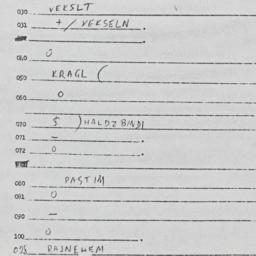 030 VEKSLT
031 + / VEKSELN
0
040
050 KRAGL (
060 0
070 5 ) HALDZBINDI
071 –
072 0
080 PASTIM
081 0
090 –
100 0
098 RAJNEHEM